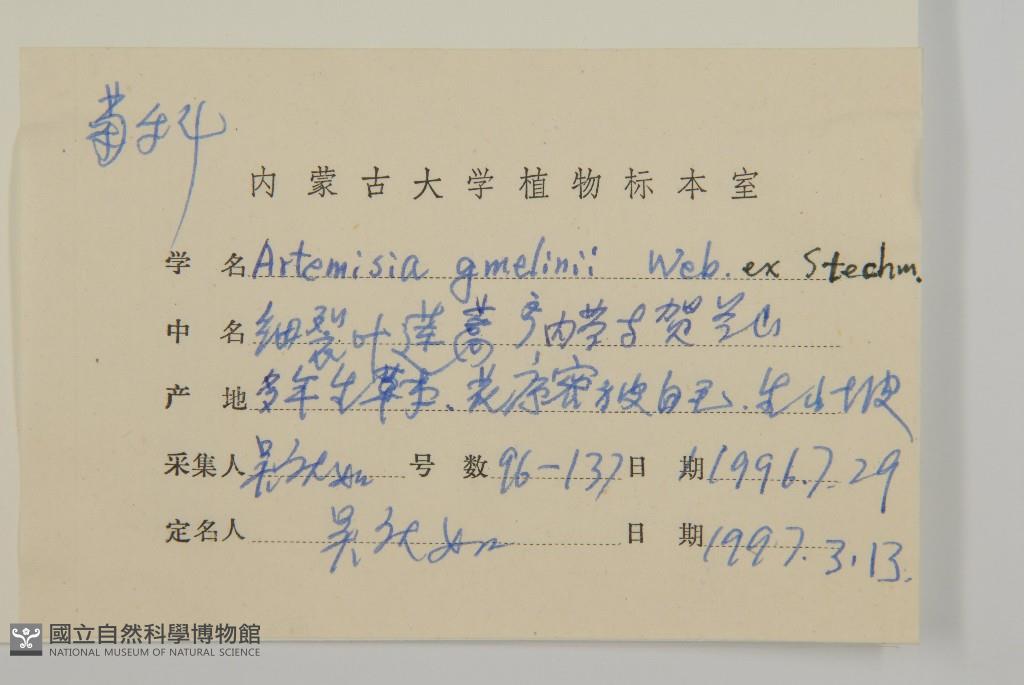 菊科
内蒙古大学植物标本室
学 名 Artemisia gmelinii Web. ex Stechm.
中 名 细裂叶莲蒿 产内蒙古贺兰山
产 地 多年生草本、密被白毛、生山坡
采集人 吴 号 数 96-137 日 期 1996.7.29
定名人 吴 日 期 1997.3.13.
國立自然科學博物館
NATIONAL MUSEUM OF NATURAL SCIENCE